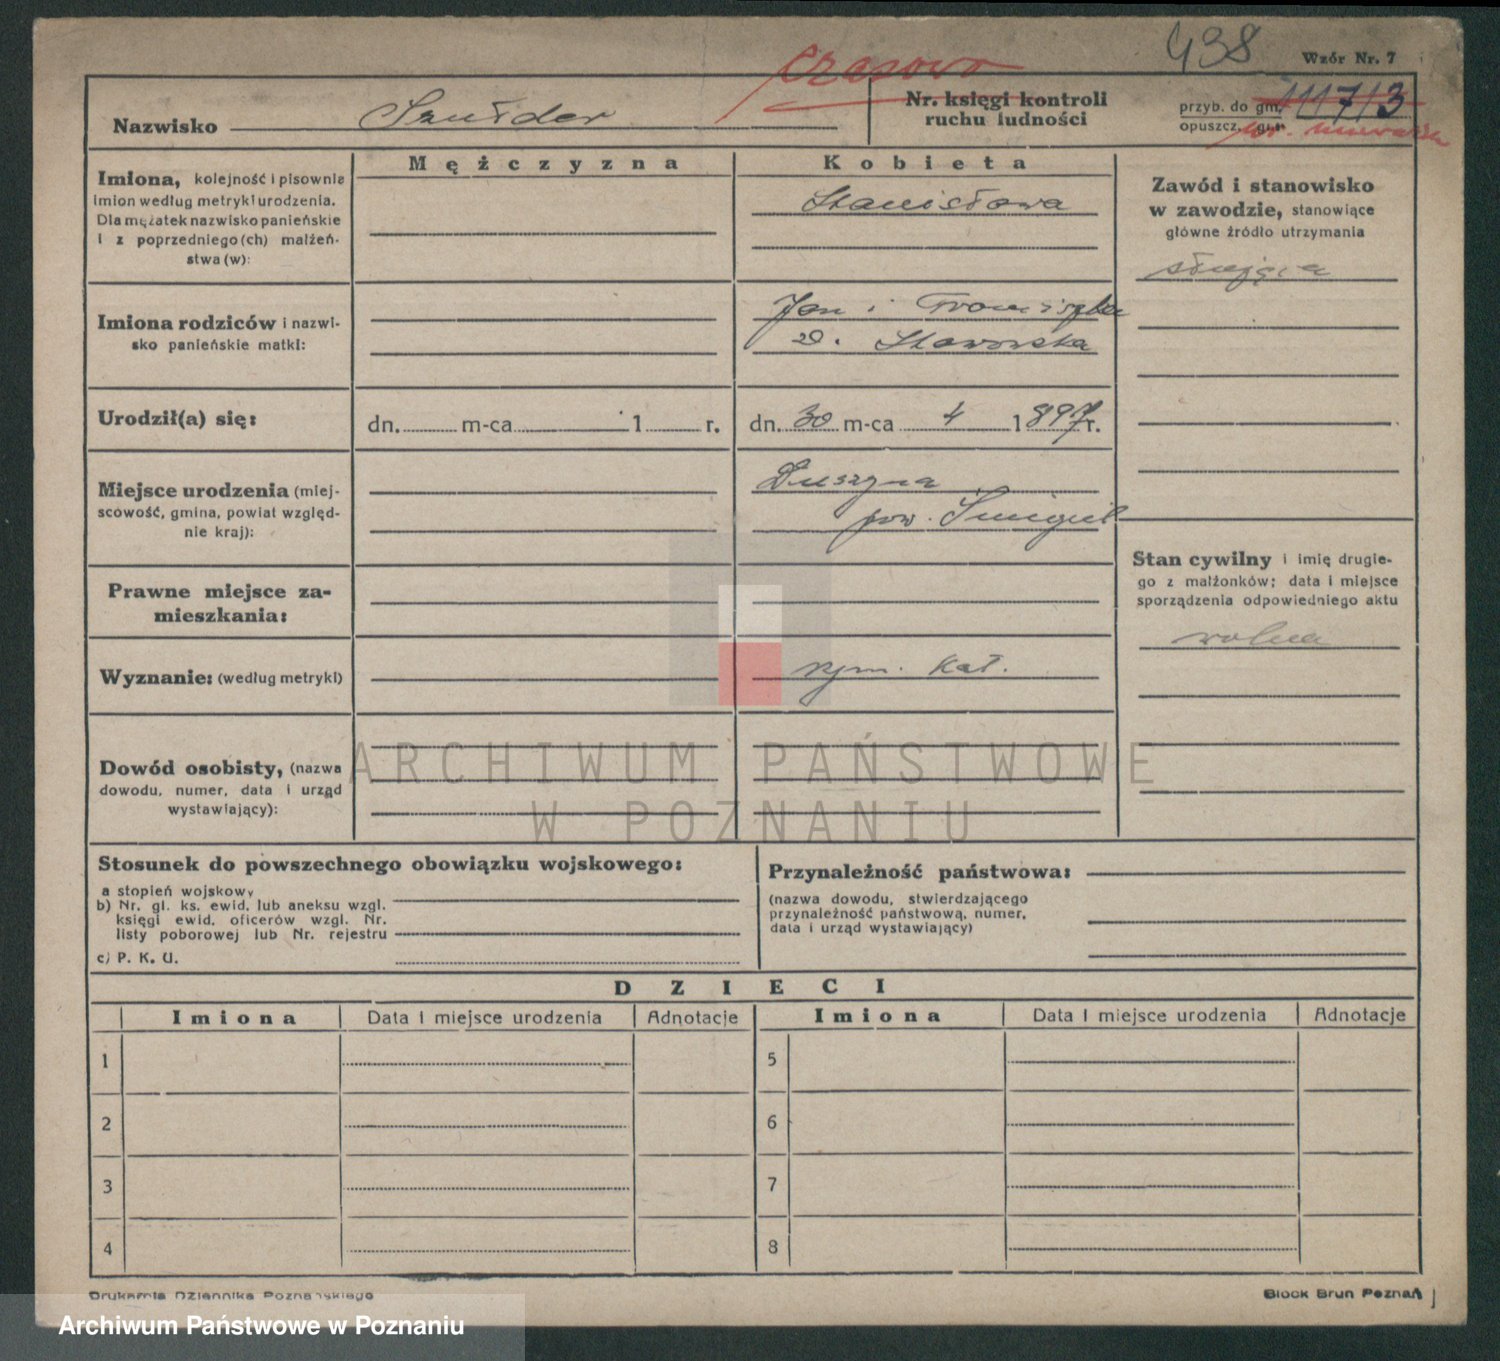 czasowo
438
Wzór Nr. 7
Nazwisko Szulder
Nr. księgi kontroli
ruchu ludności
przyb. do gm. 11713
opuszcz. gm.
Mężczyzna
Kobieta
Imiona, kolejność i pisownia
imion według metryki urodzenia.
Dla mężatek nazwisko panieńskie
i z poprzedniego(ch) małżeń-
stwa(w):
Stanisława
Zawód i stanowisko
w zawodzie, stanowiące
główne źródło utrzymania
służąca
Imiona rodziców i nazwi-
sko panieńskie matki:
Jan i Franciszka
z d. Skaworska
Urodził(a) się:
dn. m-ca 1 r.
dn. 30 m-ca 4 1897 r.
Miejsce urodzenia (miej-
scowość, gmina, powiat względ-
nie kraj):
Duszyna
pow. Śmigiel
Stan cywilny i imię drugie-
go z małżonków; data i miejsce
sporządzenia odpowiedniego aktu
wolna
Prawne miejsce za-
mieszkania:
Wyznanie: (według metryki)
rzym. kat.
Dowód osobisty, (nazwa
dowodu, numer, data i urząd
wystawiający):
ARCHIWUM PAŃSTWOWE
W POZNANIU
Stosunek do powszechnego obowiązku wojskowego:
a stopień wojskowy
b) Nr. gl. ks. ewid. lub aneksu wzgl.
księgi ewid. oficerów wzgl. Nr.
listy poborowej lub Nr. rejestru
c) P. K. U.
Przynależność państwowa:
(nazwa dowodu, stwierdzającego
przynależność państwową, numer,
data i urząd wystawiający)
DZIECI
Imiona Data i miejsce urodzenia Adnotacje Imiona Data i miejsce urodzenia Adnotacje
1 5
2 6
3 7
4 8
Drukarnia Dziennika Poznańskiego
Block Brun Poznań
Archiwum Państwowe w Poznaniu